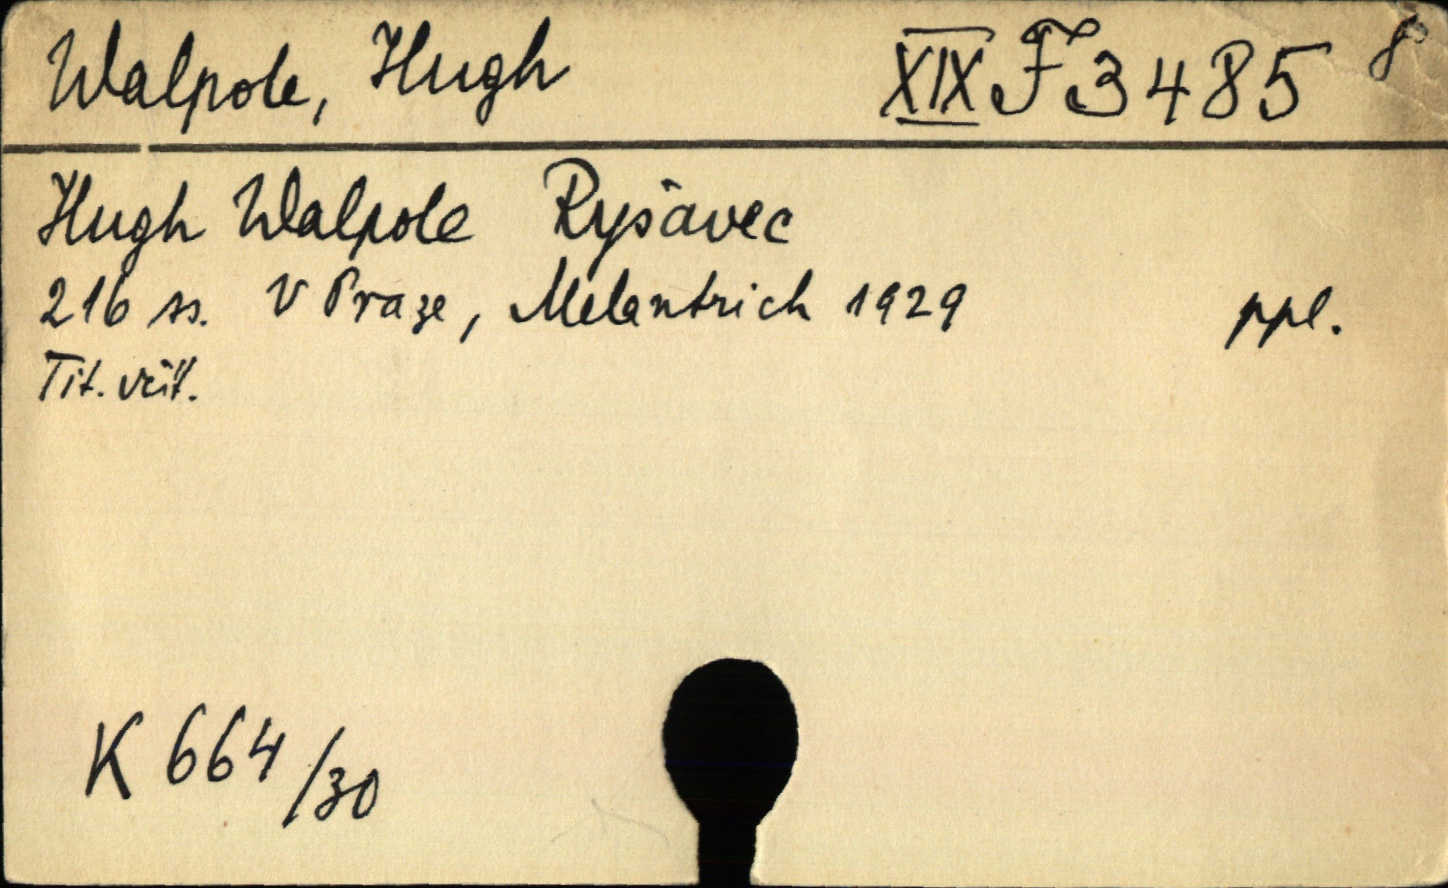 Walpole, Hugh XIX F 3485 8°
Hugh Walpole Ryšavec
216 ss. V Praze, Melantrich 1929 ppl.
Tit.
K 664/30